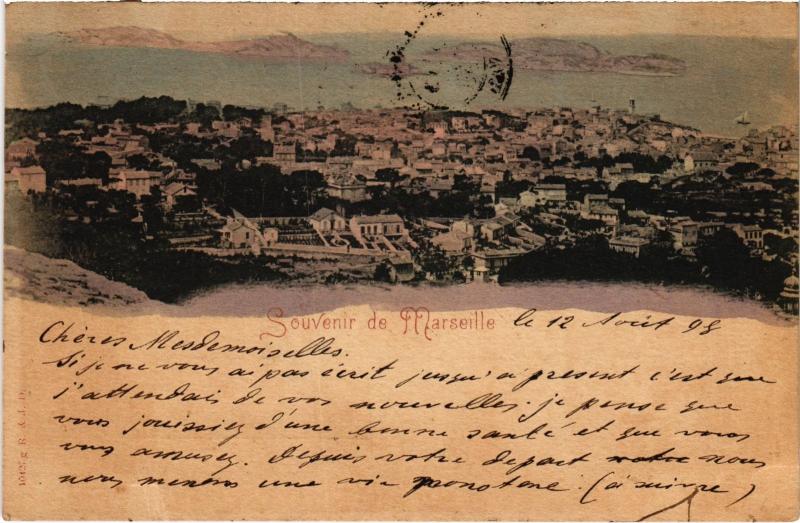 Souvenir de Marseille le 12 Août 98
Chères Mesdemoiselles.
Si je ne vous ai pas écrit jusqu'a present c'est que
j'attendais de vos nouvelles. je pense que
vous jouissiez d'une bonne santé et que vous
vous amusez. Depuis votre depart nous
nous menons une vie monotone. (à suivre)